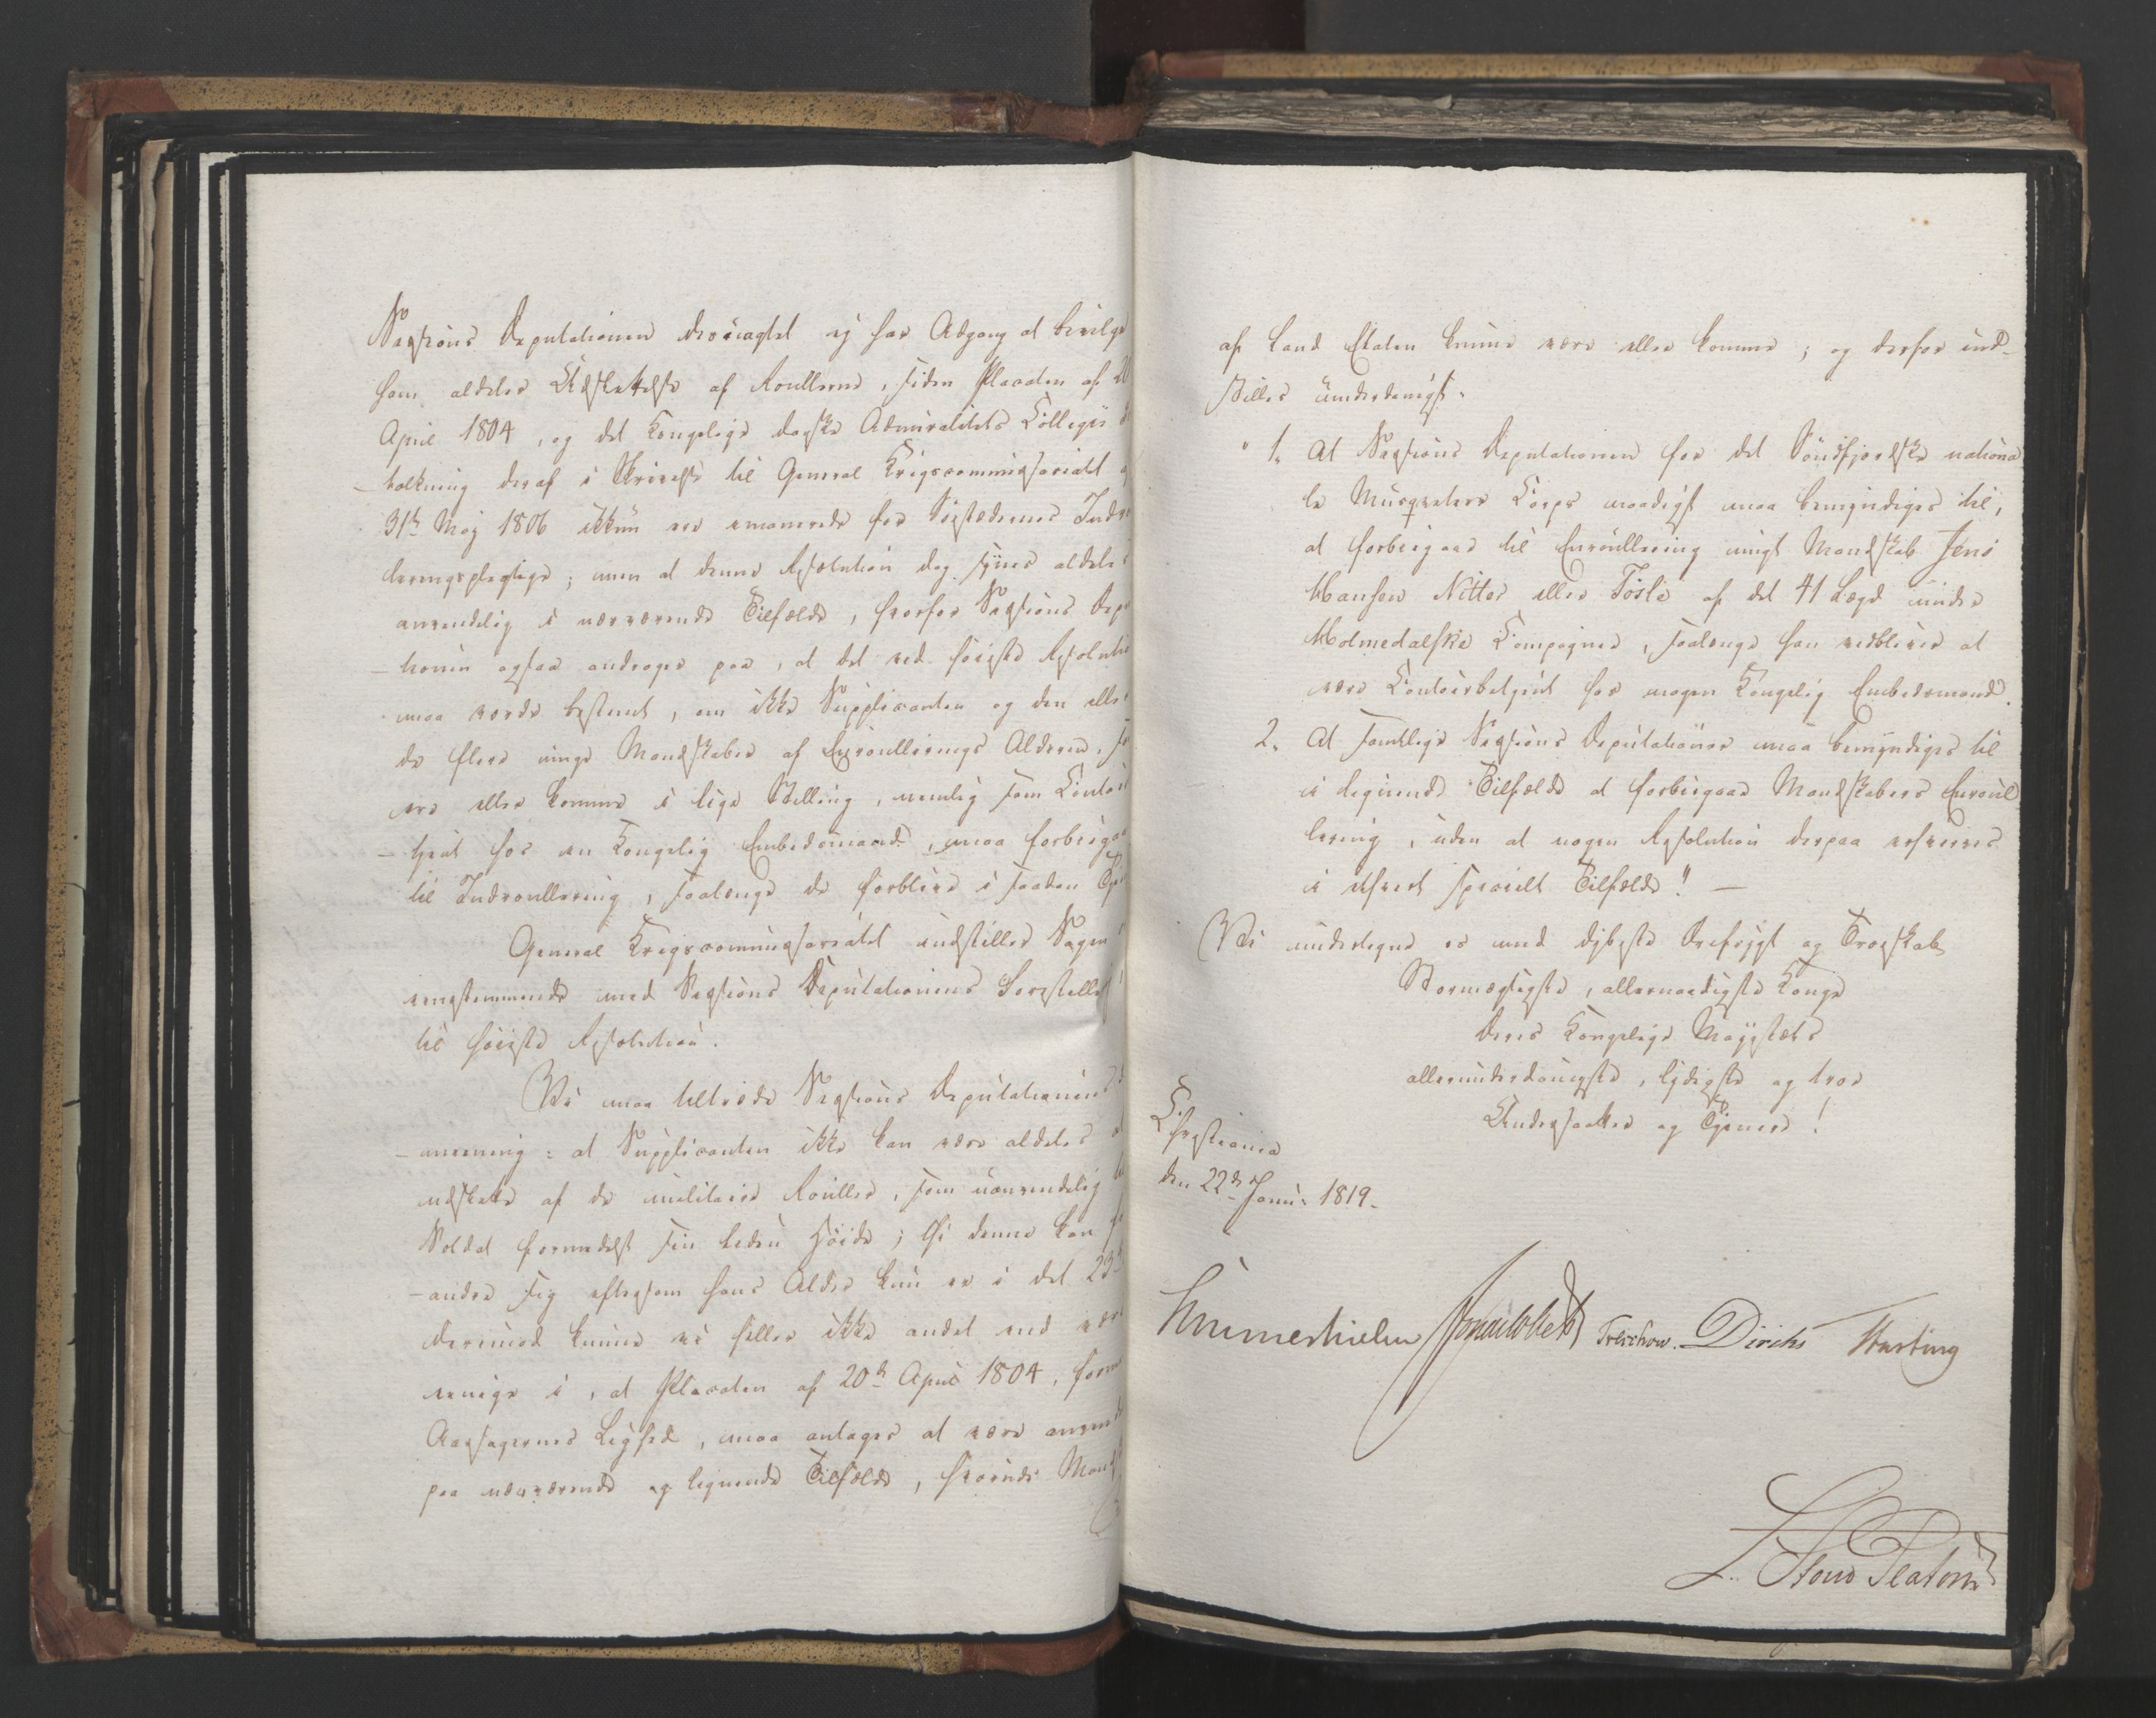 Sessions Deputationen desuagtet ej har Adgang at bevilge
ham aldeles Udslettelse af Roullerne, siden Placaten af 20
April 1804, og det Kongelige danske Admiralitets Collegii
-tolkning deraf i Skrivelse til General Krigscommissariatet
31te Maj 1806 ikkun er emanerede for Søstædernes Indrou
leringspligtige; men at denne Resolution dog synes aldeles
anvendelig i nærværende Tilfælde, hvorfor Sessions Depu
-tionen ogsaa andrager paa, at det ved høieste Resolution
maa vorde bestemt, om ikke Supplicanten og den eller
de flere unge Mandskaber af Enroullerings Alderen, som
ere eller komme i lige Stilling, nemlig som Contoir
-tjent hos en Kongelig Embedsmand, maa forbigaaes
til Indroullering, saalænge de forblive i saadan Tje
General Krigscommissariatet indstiller Sagen
eenstemmende med Sessions Deputationens Forestillelse
til høieste Resolution.
Vi maa tiltræde Sessions Deputationens
-meening: at Supplicanten ikke kan være aldeles at
udslette af de militaire Rouller, som uanvendelig til
Soldat formedelst sin liden Høide; thi denne kan
-andre sig eftersom hans Alder kun er i det 23de
derimod kunne vi heller ikke andet end være
eenige i, at Placaten af 20de April 1804, formedelst
Aarsagernes Lighed, maa antages at være anvendelig
paa nærværende og lignende Tilfælde, hvorude Mand
af Land Etaten kunne være eller komme; og derfor ind-
stilles underdanigst:
"1. At Sessions Deputationen for det Søndfjordske nationa
le Musqueteer Corps naadigst maa bemyndiges til,
at forbigaae til Enroullering ungt Mandskab Jens
Hansen Nitter eller Tosle af det 41 Lægd under
Holmedalske Compagnie, saalænge han vedbliver at
være Contoirbetjent hos nogen Kongelig Embedsmand.
2. At samtlige Sessions Deputationer maa bemyndiges til
i lignende Tilfælde at forbigaae Mandskabers Enroul
lering, uden at nogen Resolution derpaa erhverves
i ethvert specielt Tilfælde!" —
Vi undertegne os med dybeste Ærefrygt og Troskab
Stormægtigste, allernaadigste Konge
Deres Kongelige Majestæts
allerunderdanigste, lydigste og troe
Undersaatter og Tjenere!
Christiania
den 22de Janu: 1819.
Hummerhielm Motzfeldt Treschow. Diriks Hasting
L. Stoud Platou